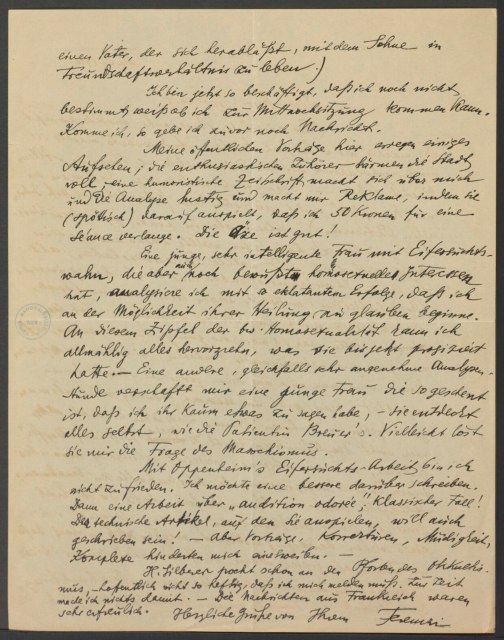 einen Vater, der sich herabläßt, mit dem Sohne in
Freundschaftsverhältnis zu leben.)
Ich bin jetzt so beschäftigt, daß ich noch nicht
bestimmt weiß ob ich zur Mittwochsitzung kommen kann.
Komme ich, so gebe ich zuvor noch Nachricht.
Meine öffentlichen Vorträge hier erregen einiges
Aufsehen; die enthusiastischen Zuhörer lärmen die Stadt
voll; eine humoristische Zeitschrift macht sich über mich
und die Analyse lustig und macht mir Reklame, indem sie
(spöttisch) darauf anspielt, daß ich 50 Kronen für eine
Séance verlange. Die ist gut!
Eine junge, sehr intelligente Frau mit Eifersuchts-
wahn, die aber nur noch bewußte homosexuelle Interessen
hat, analysiere ich mit so eklatantem Erfolge, daß ich
an der Möglichkeit ihrer Heilung zu glauben beginne.
An diesem Zipfel der bw. Homosexualität kann ich
allmählig alles hervorziehn, was sie bis jetzt projiziert
hatte. — Eine andere, gleichfalls sehr angenehme Analysen-
stunde verschafft mir eine junge Frau die so gescheut
ist, daß ich ihr kaum etwas zu sagen habe, – sie entdeckt
alles selbst, wie die Patientin Breuer's. Vielleicht löst
sie mir die Frage des Masochismus.
Mit Oppenheim's Eifersuchts-Arbeit bin ich
nicht zufrieden. Ich möchte eine bessere darüber schreiben.
Dann eine Arbeit über „audition odorée“, klassischer Fall!
Der technische Artikel, auf den Sie anspielen, will auch
geschrieben sein! — Aber Vorträge, Korrekturen, Müdigkeit,
Komplexe hinderten mich einstweilen. —
H. Silberer pocht schon an den Pforten des Okkultis-
mus, – hoffentlich nicht so heftig, daß ich mich melden muß. Zur Zeit
mache ich nichts damit. — Die Nachrichten aus Frankreich waren
sehr erfreulich. Herzliche Grüße von Ihrem Ferenczi